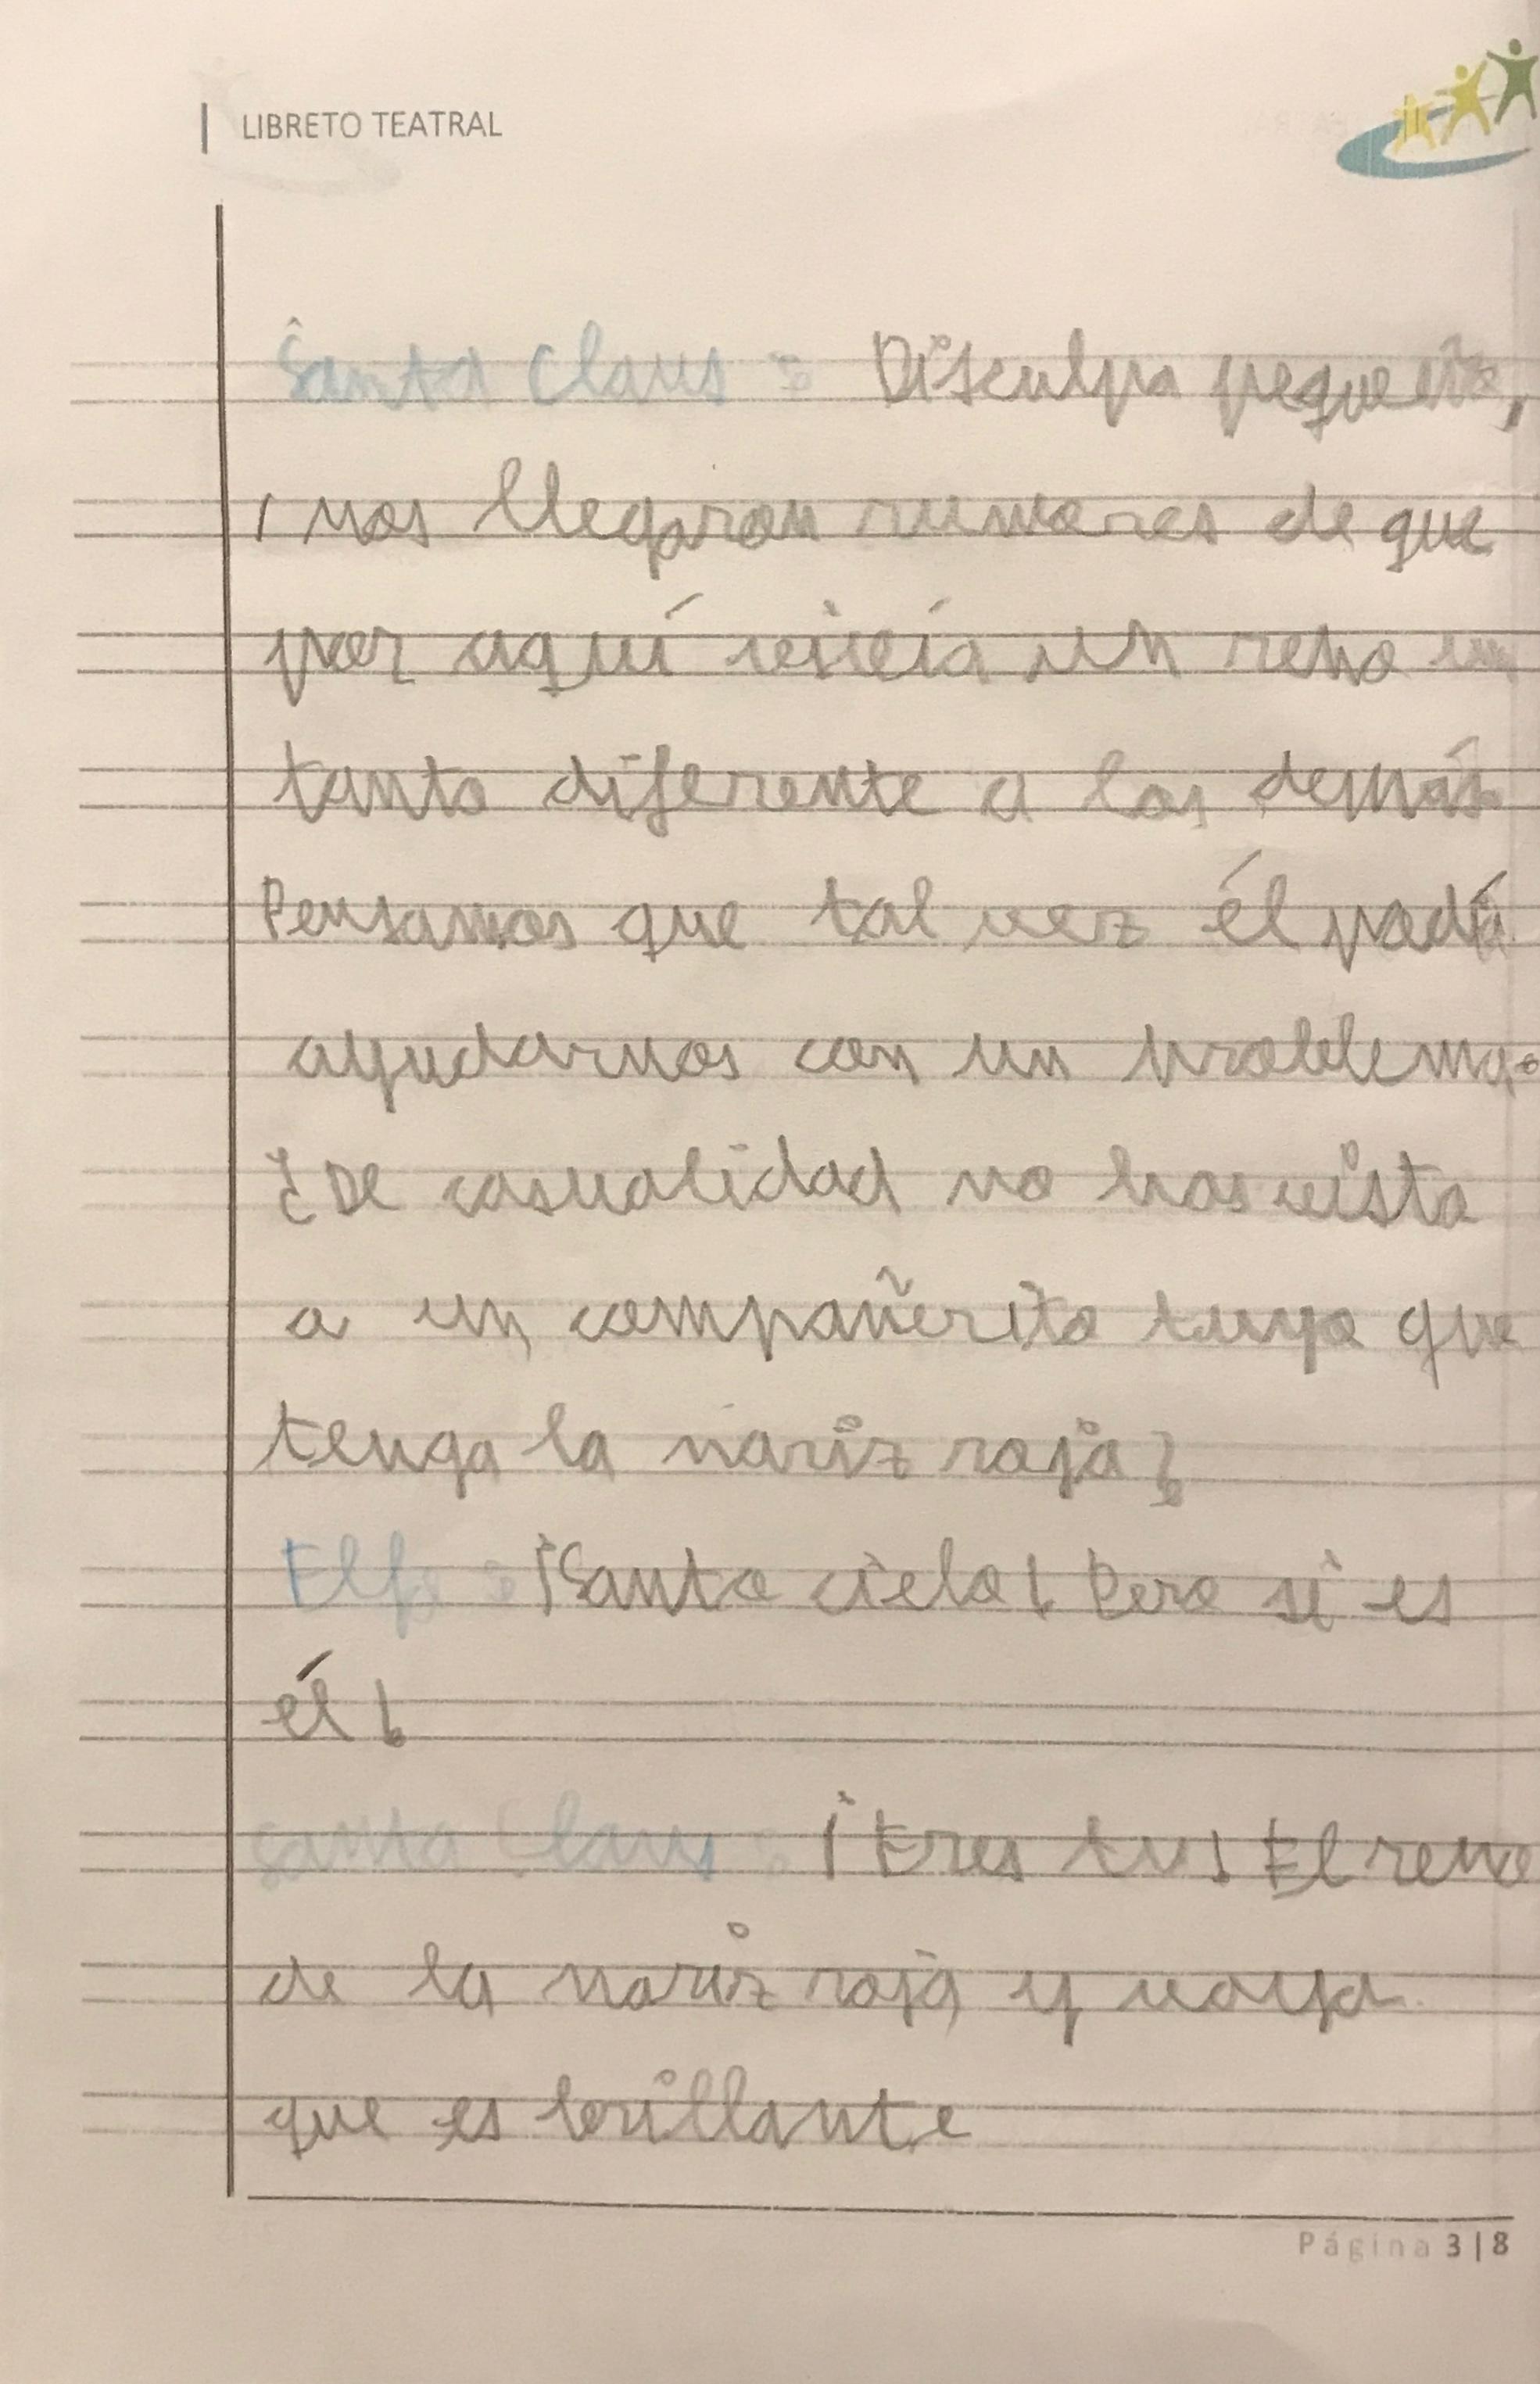 LIBRETO TEATRAL
Santa Claus: Disculpa pequeño,
nos llegaron rumores de que
por aquí vivía un reno un
tanto diferente a los demás
Pensamos que tal vez él podía
ayudarnos con un problema.
¿De casualidad no has visto
a un compañerito tuyo que
tenga la nariz roja?
Elfo: ¡Santo cielo! Pero si es
él!
Santa Claus: ¡Eres tu! El reno
de la nariz roja y vaya
que es brillante
Página 3|8